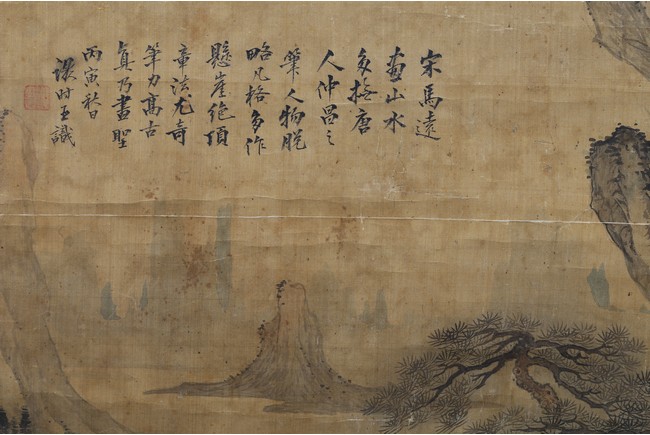 宋馬遠
畫山水
多撫唐
人仲昌之
筆人物脫
略凡格多作
懸崖絶頂
章法尤奇
筆力高古
真乃畫聖
丙寅秋日
時玉識